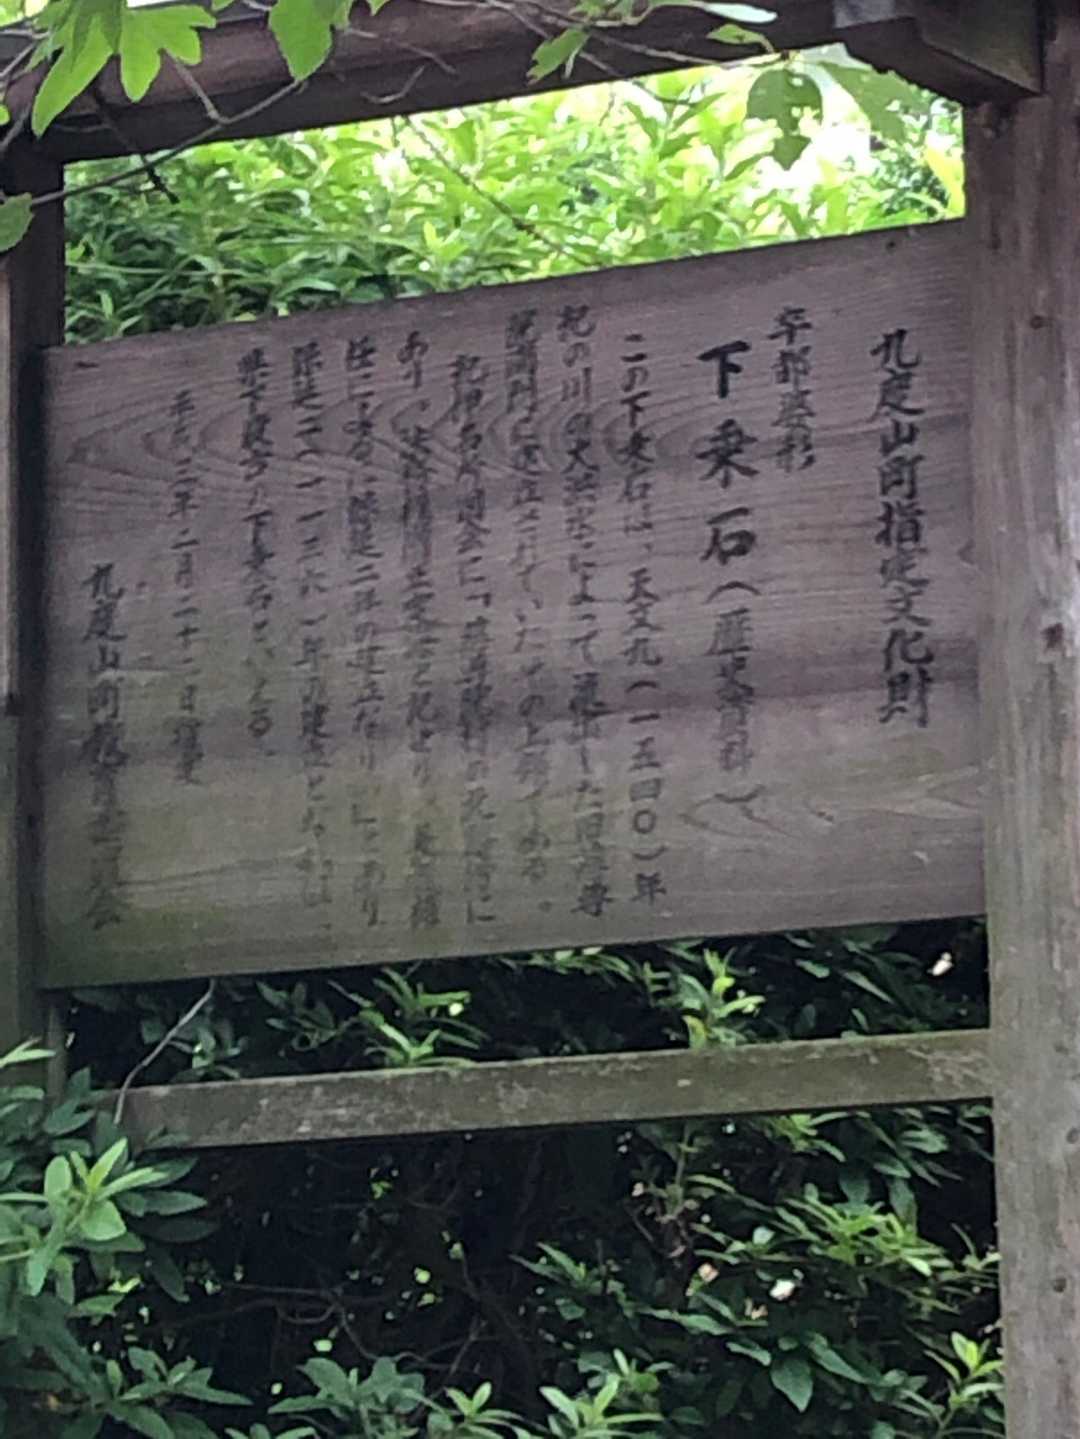 九度山町指定文化財
卒都婆形
下乗石(歴史資料)
この下乗石は、天文九(一五四〇)年
紀の川の大洪水によって流出した旧慈尊
院南門に建立されていたものである。
紀伊名所図会に「慈尊院村の
あり、
任によるに保延二年の建立なり」とあり
保延二(一一三六)年の建立とすれば、
県下最古の下乗石といえる。
平成三年二月二十一日指定
九度山町教育委員会